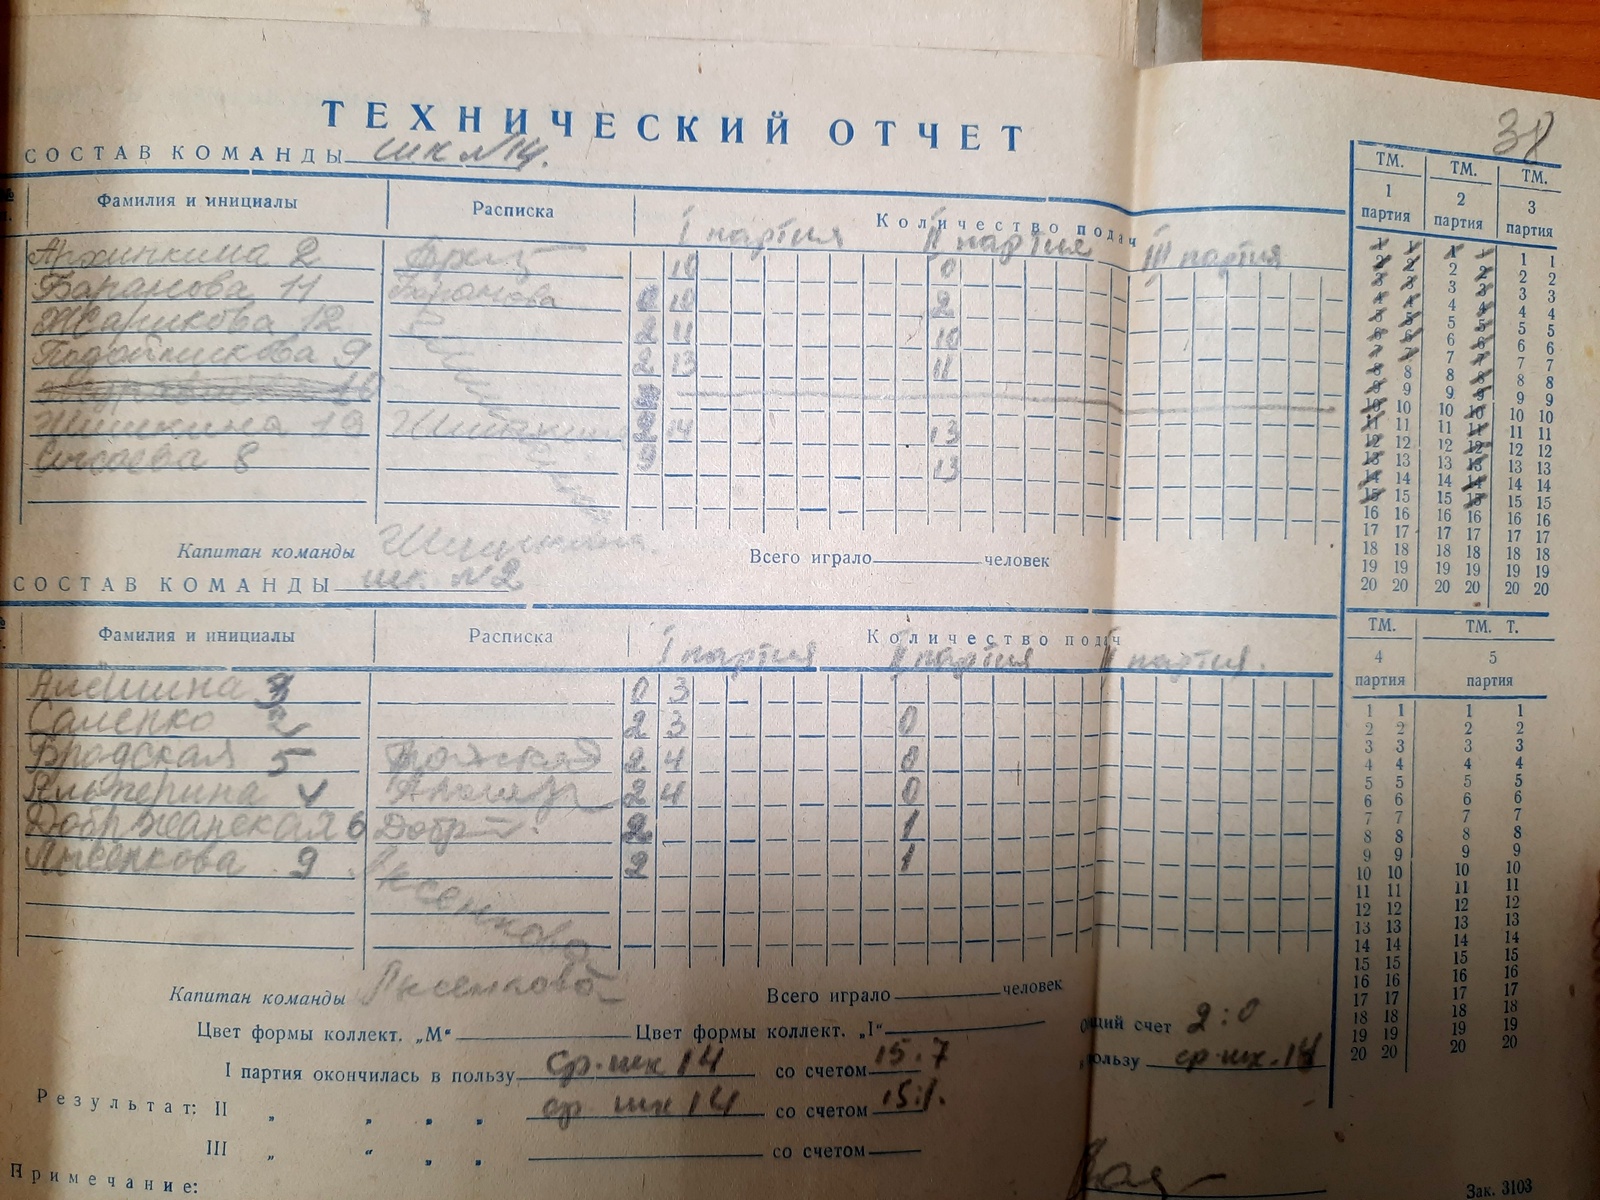 38
ТЕХНИЧЕСКИЙ ОТЧЕТ
СОСТАВ КОМАНДЫ шк N14.
Фамилия и инициалы Расписка Количество подач
I партия II партия III партия
2 10 0
Баранова 11 Баранова 0 10 2
Жарикова 12 2 11 10
Подойникова 9 2 13 11
Шишкина 13 14 13
8 13
Капитан команды Шишкина. Всего играло человек
СОСТАВ КОМАНДЫ шк. N2
Фамилия и инициалы Расписка Количество подач
I партия II партия II партия.
Алёшина 3 0 3
Саленко 2 2 3 0
Бродская 5 2 4 0
Альперина 4 2 4 0
Добржанская 6 Добр 2 1
Аксенкова 9 Аксенкова 2 1
Капитан команды Аксенкова Всего играло человек
Цвет формы коллект. „М“ Цвет формы коллект. „I“ щий счет 2:0
I партия окончилась в пользу ср. шк 14 со счетом 15.7 пользу ср. шк. 14
Результат: II „ „ „ „ ср. шк 14 со счетом 15:1.
III „ „ „ „ со счетом
Примечание:
Зак. 3103
ТМ. ТМ. ТМ.
1 2 3
партия партия партия
1 1 1 1 1 1
2 2 2 2 2 2
3 3 3 3 3 3
4 4 4 4 4 4
5 5 5 5 5 5
6 6 6 6 6 6
7 7 7 7 7 7
8 8 8 8 8 8
9 9 9 9 9 9
10 10 10 10 10 10
11 11 11 11 11 11
12 12 12 12 12 12
13 13 13 13 13 13
14 14 14 14 14 14
15 15 15 15 15 15
16 16 16 16 16 16
17 17 17 17 17 17
18 18 18 18 18 18
19 19 19 19 19 19
20 20 20 20 20 20
ТМ. ТМ. Т.
4 5
партия партия
1 1 1 1
2 2 2 2
3 3 3 3
4 4 4 4
5 5 5 5
6 6 6 6
7 7 7 7
8 8 8 8
9 9 9 9
10 10 10 10
11 11 11 11
12 12 12 12
13 13 13 13
14 14 14 14
15 15 15 15
16 16 16 16
17 17 17 17
18 18 18 18
19 19 19 19
20 20 20 20